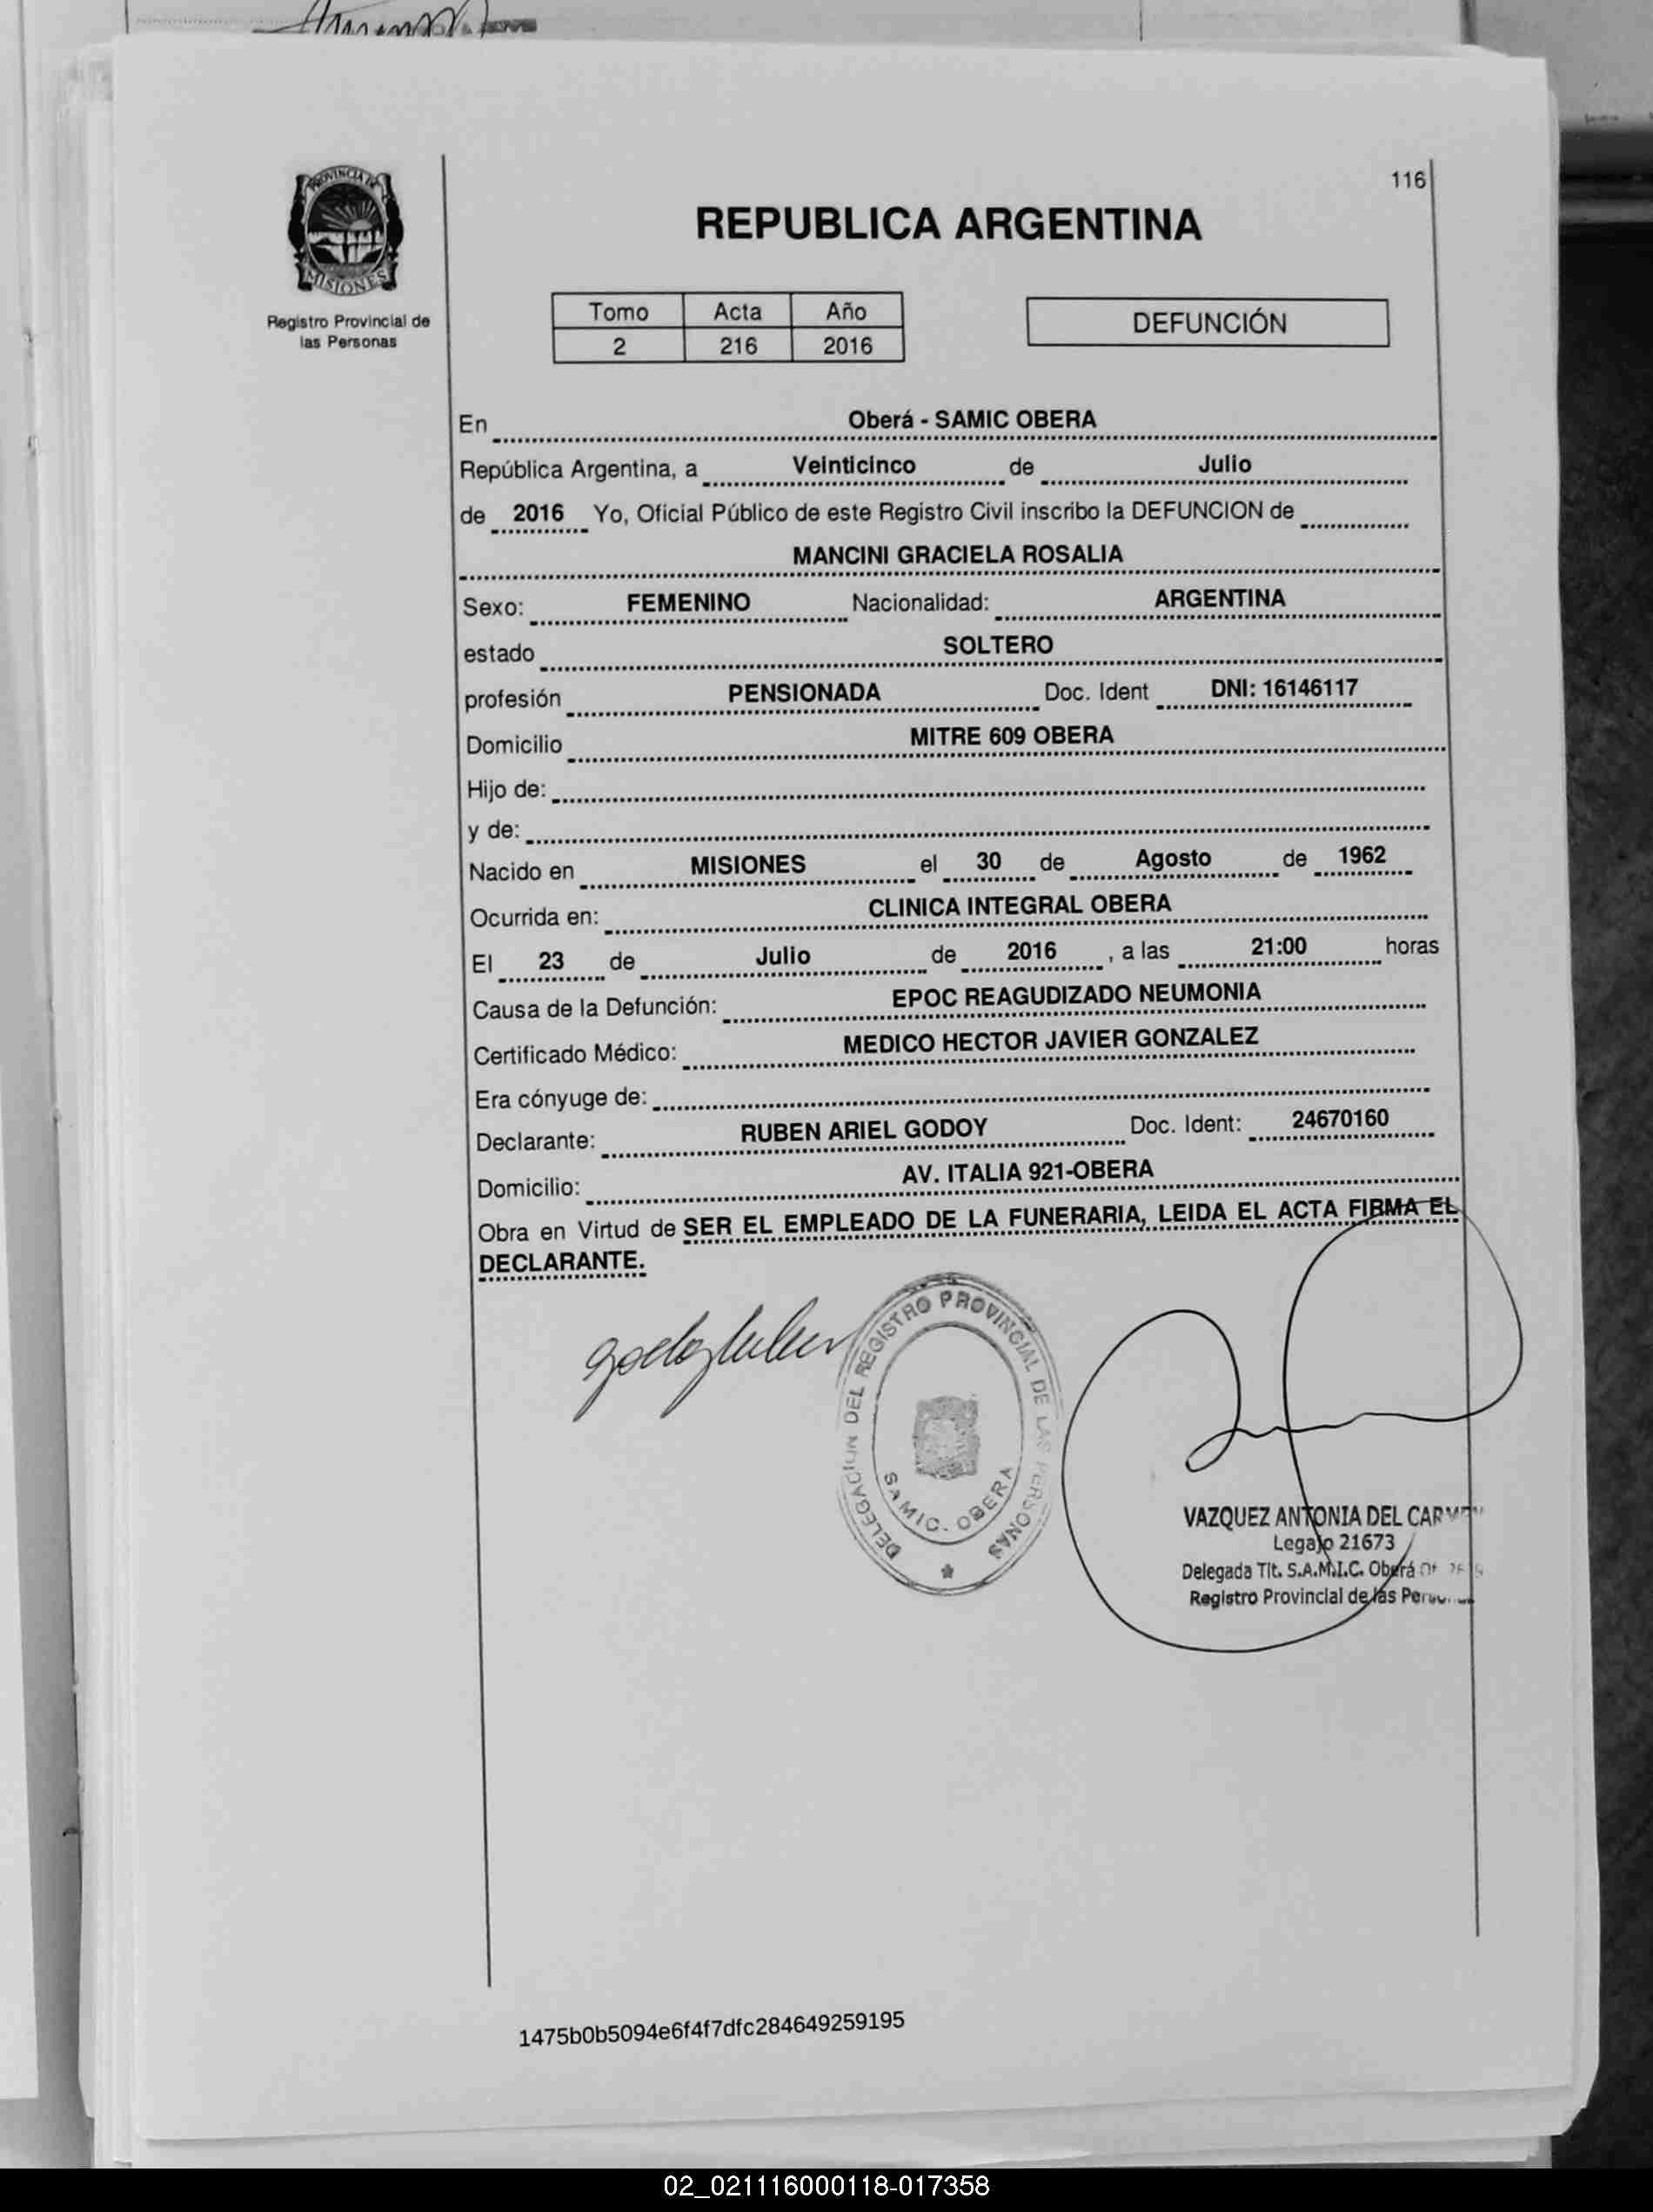 116
PROVINCIA DE
MISIONES
Registro Provincial de
las Personas
REPUBLICA ARGENTINA
Tomo Acta Año
2 216 2016
DEFUNCIÓN
En Oberá - SAMIC OBERA
República Argentina, a Veinticinco de Julio
de 2016 Yo, Oficial Público de este Registro Civil inscribo la DEFUNCION de
MANCINI GRACIELA ROSALIA
Sexo: FEMENINO Nacionalidad: ARGENTINA
estado SOLTERO
profesión PENSIONADA Doc. Ident DNI: 16146117
Domicilio MITRE 609 OBERA
Hijo de:
y de:
Nacido en MISIONES el 30 de Agosto de 1962
Ocurrida en: CLINICA INTEGRAL OBERA
El 23 de Julio de 2016 , a las 21:00 horas
Causa de la Defunción: EPOC REAGUDIZADO NEUMONIA
Certificado Médico: MEDICO HECTOR JAVIER GONZALEZ
Era cónyuge de:
Declarante: RUBEN ARIEL GODOY Doc. Ident: 24670160
Domicilio: AV. ITALIA 921-OBERA
Obra en Virtud de SER EL EMPLEADO DE LA FUNERARIA, LEIDA EL ACTA FIRMA EL
DECLARANTE.
DELEGACION DEL REGISTRO PROVINCIAL DE LAS PERSONAS
SAMIC. OBERA
VAZQUEZ ANTONIA DEL CARMEN
Legajo 21673
Delegada Tit. S.A.M.I.C. Oberá
Registro Provincial de las Personas
1475b0b5094e6f4f7dfc284649259195
02_021116000118-017358